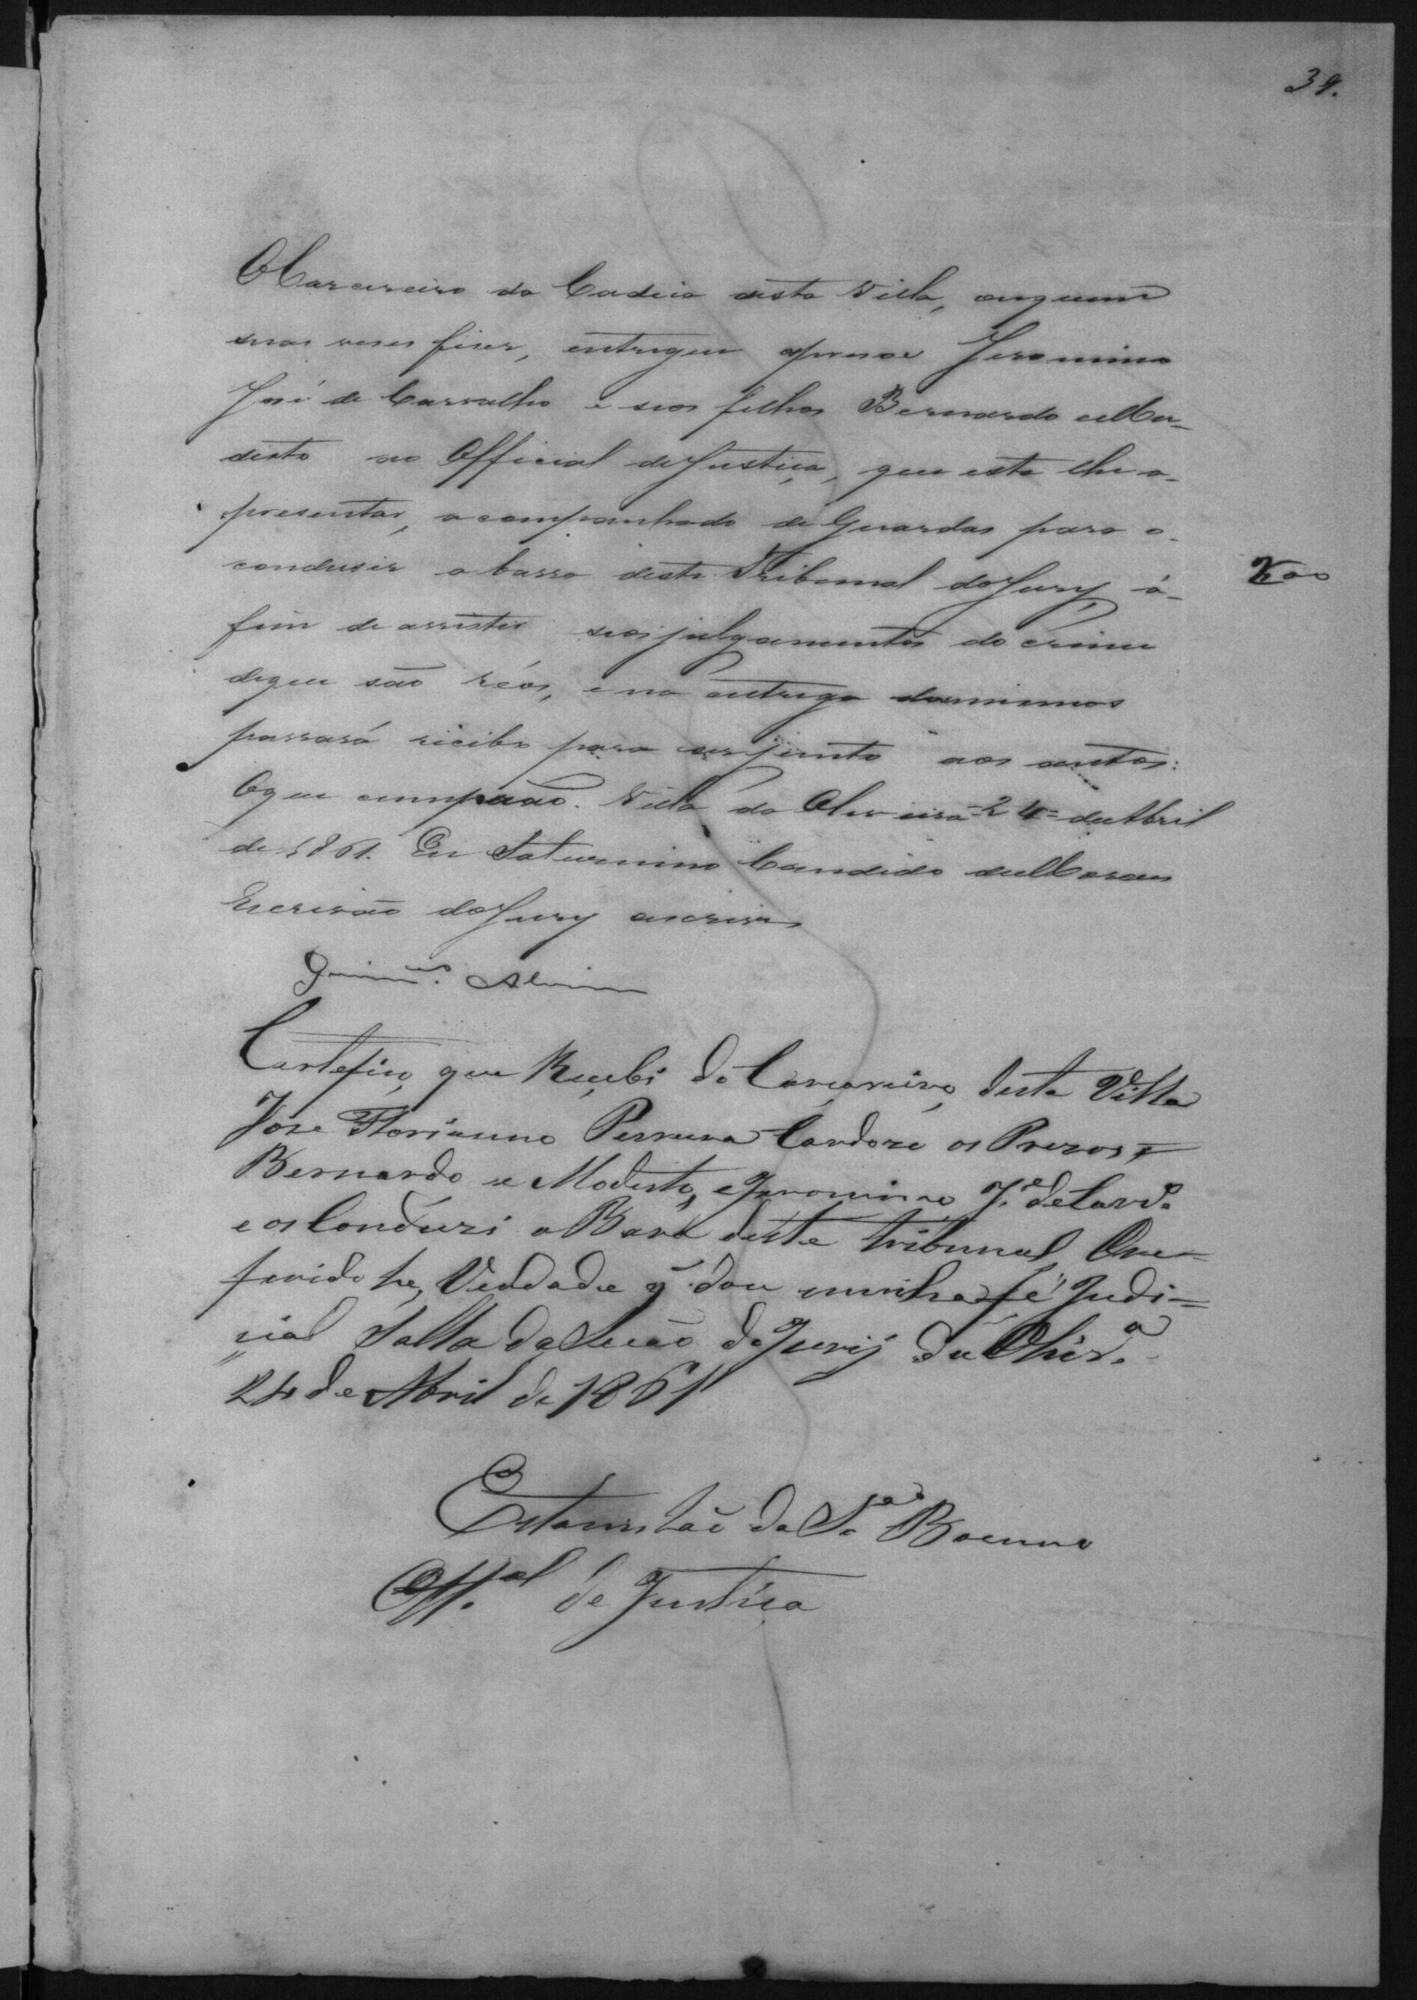 O Carcereiro da Cadeia desta Villa, ou quem
suas veses fizer, entregue o preso Jeronimo
José de Carvalho e seos filhos Bernardo e Mo-
desto ao Official de Justiça, que este lhe a-
presentar, acompanhado de Guardas para o
condusir a barra deste Tribunal do Jury á-
fim de assistir seos julgamentos do crime
de que são réos, e na entrega dos mesmos
passará recibo para ser junto aos autos:
O que cumprão. Villa da Oliveira = 24 = de Abril
de 1861. Eu Saturnino Candido de Moraes
Escrivão do Jury escrivi
Alvim
Cartefico que Recebi do Carcareiro desta Villa
Jose Florianno Perreira Cardozo os Prezos
Bernardo e Modesto, e Jeronimo J.e de Carv.o
e os Conduzi a Bara deste tribunal O re-
ferido he Verdade q̃ dou minha fé Judi=
cial Salla da Seção do Jurij da Olivr.a
24 de Abril de 1861
Estanisláo da S.a Boenno
Off.al de Justica